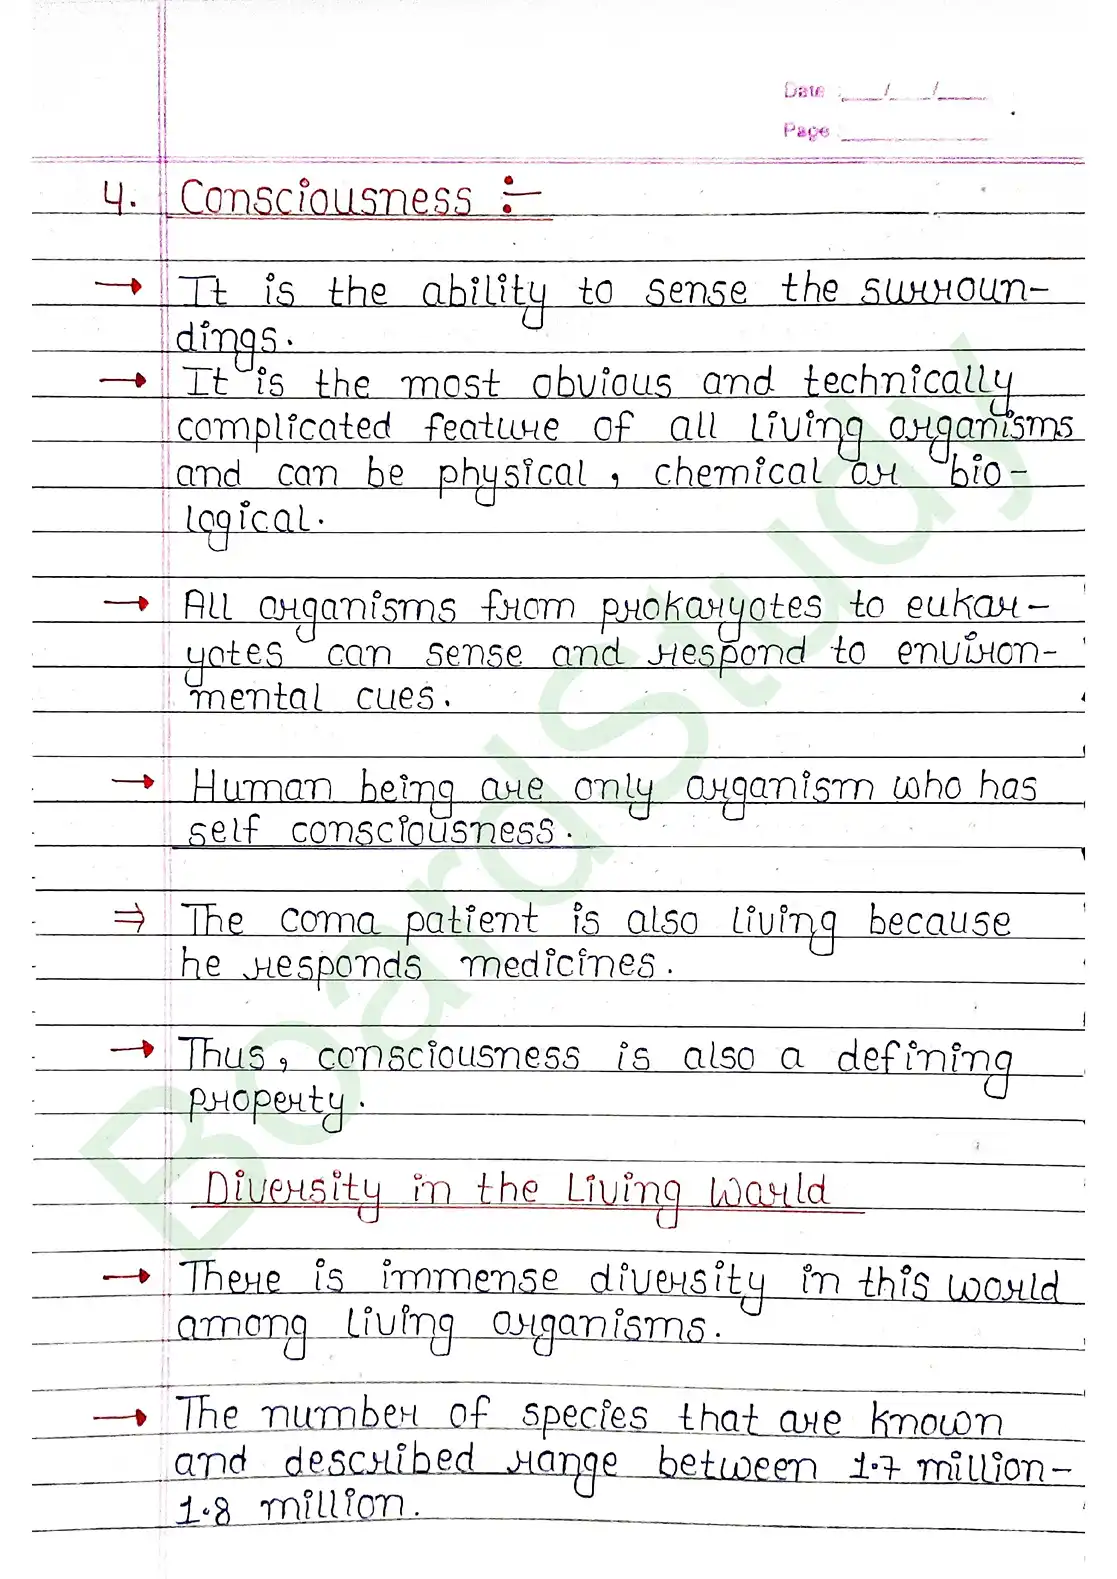 Date : ___/___/____
Page : ____________
4. Consciousness :-
→ It is the ability to sense the surroun-
dings.
→ It is the most obvious and technically
complicated feature of all living organisms
and can be physical, chemical or bio-
logical.
→ All organisms from prokaryotes to eukar-
yotes can sense and respond to environ-
mental cues.
→ Human being are only organism who has
self consciousness.
⇒ The coma patient is also living because
he responds medicines.
→ Thus, consciousness is also a defining
property.
Diversity in the Living World
→ There is immense diversity in this world
among living organisms.
→ The number of species that are known
and described range between 1.7 million-
1.8 million.
BoardStudy